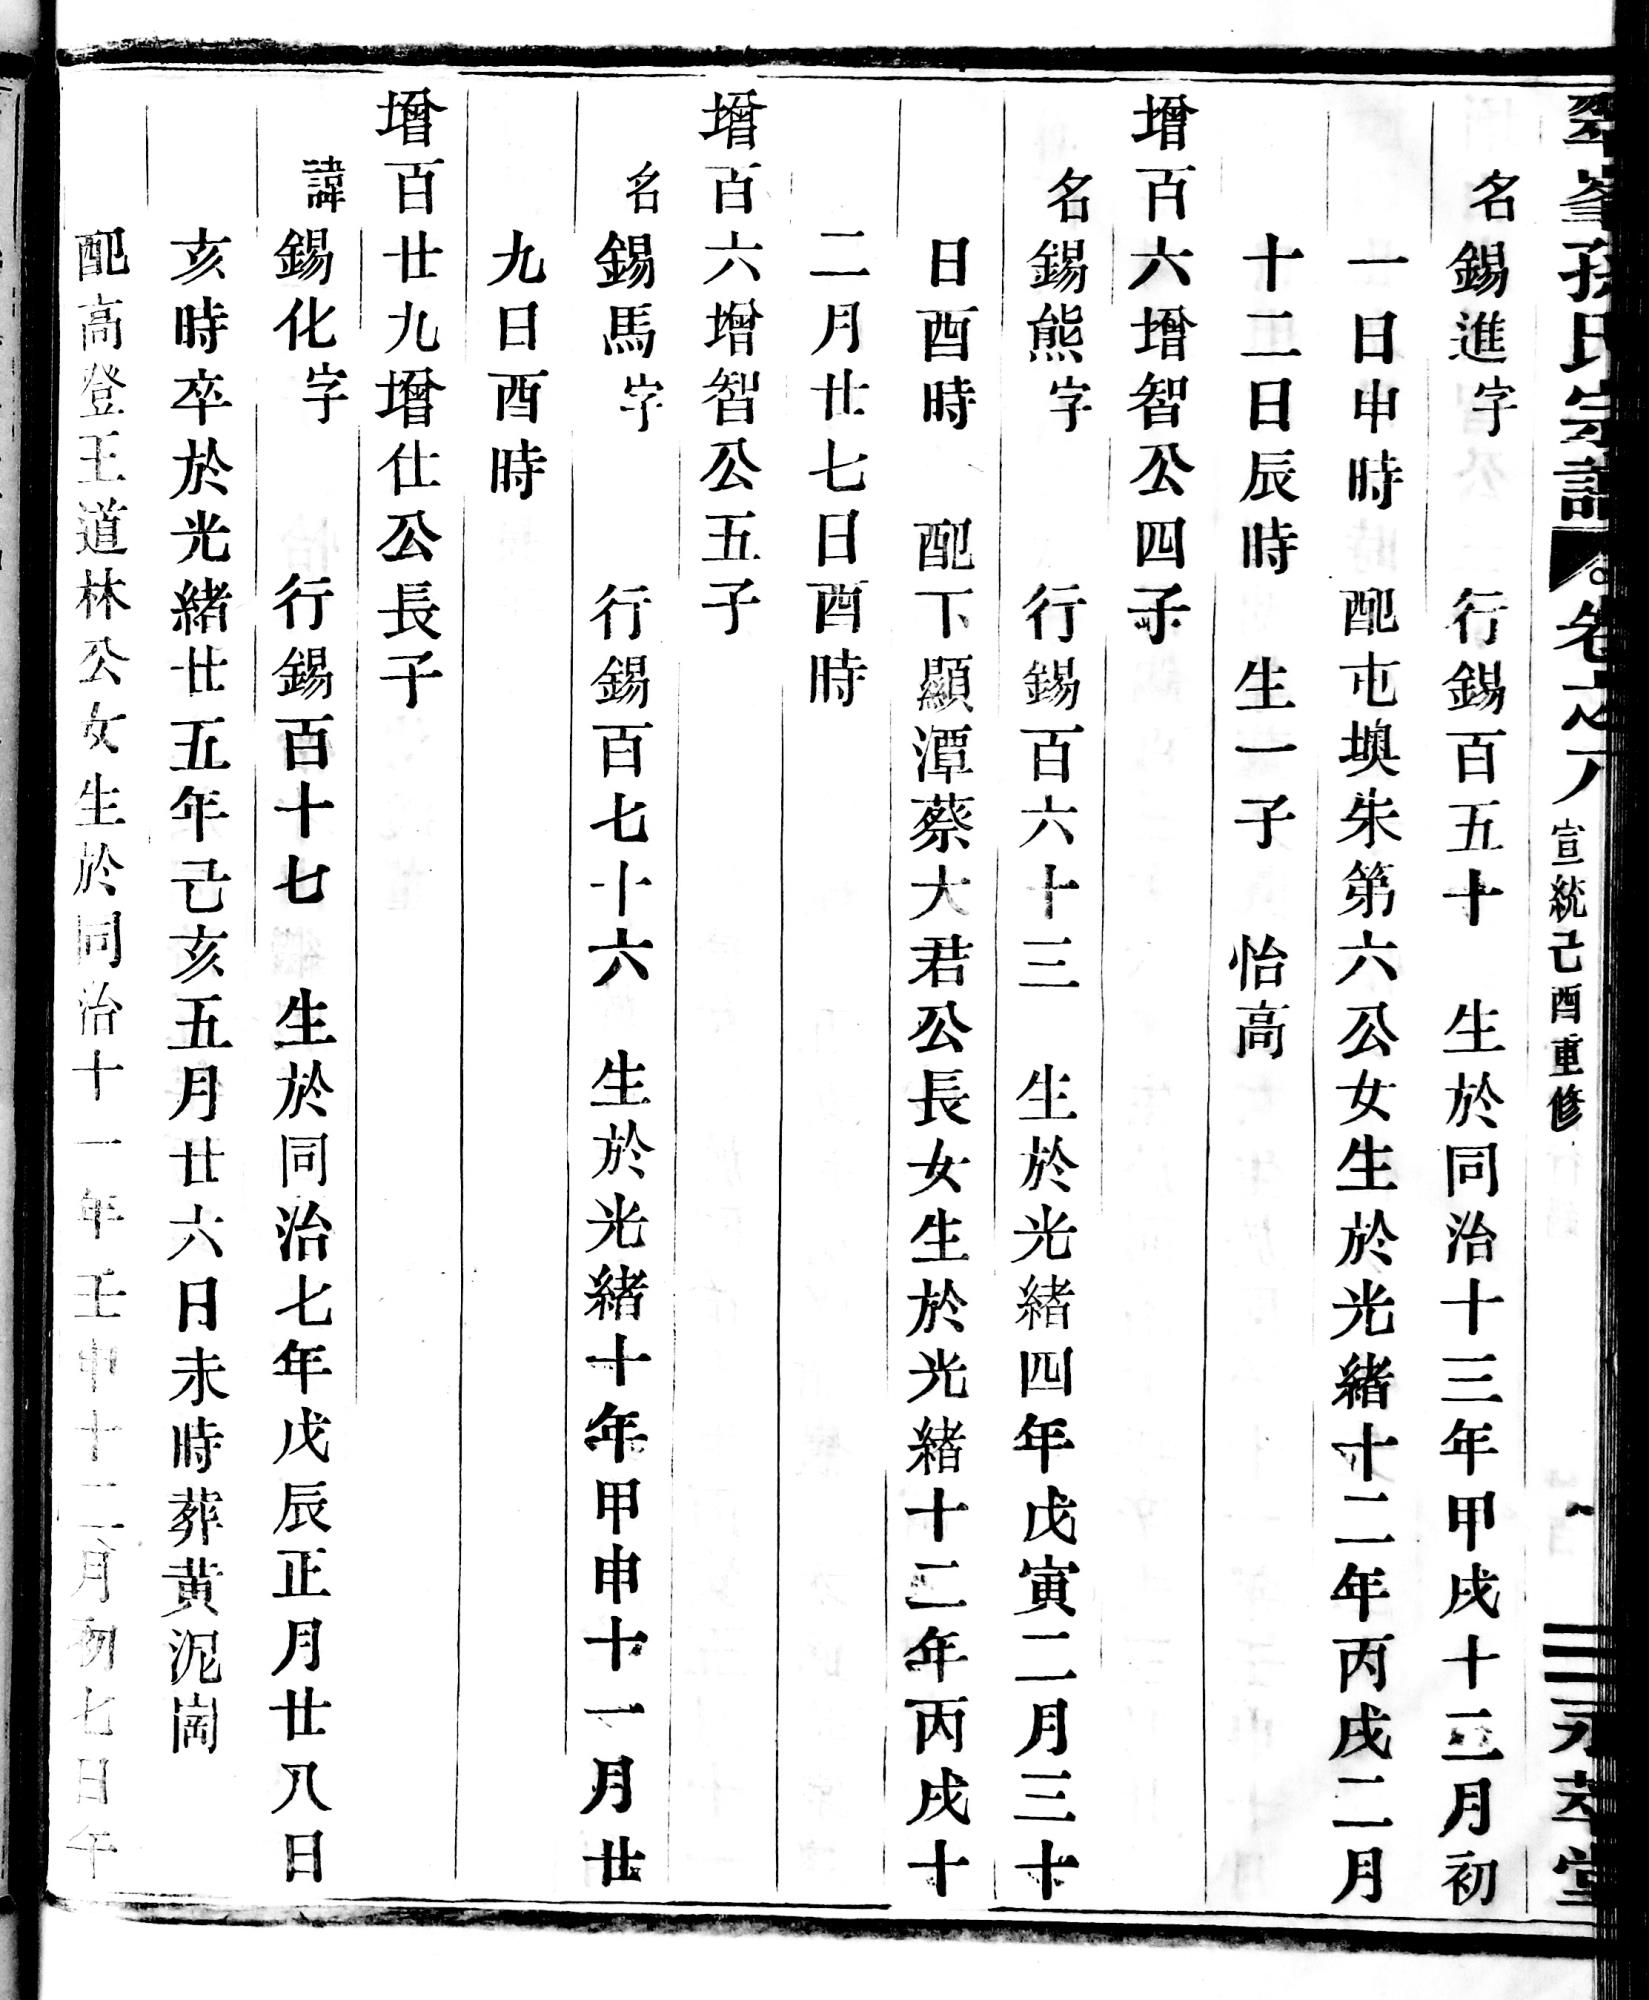 峯孫氏宗譜 卷之八 宣統己酉重修 永萃堂
名錫進字 行錫百五十 生於同治十三年甲戌十二月初
一日申時 配屯墺朱第六公女生於光緒十二年丙戌二月
十二日辰時 生一子 怡高
增百六增智公四子
名錫熊字 行錫百六十三 生於光緒四年戊寅二月三十
日酉時 配下顯潭蔡大君公長女生於光緒十二年丙戌十
二月廿七日酉時
增百六增智公五子
名錫馬字 行錫百七十六 生於光緒十年甲申十一月廿
九日酉時
增百廿九增仕公長子
諱錫化字 行錫百十七 生於同治七年戊辰正月廿八日
亥時卒於光緒廿五年己亥五月廿六日未時葬黃泥崗
配高登王道林公女生於同治十一年壬申十二月初七日午